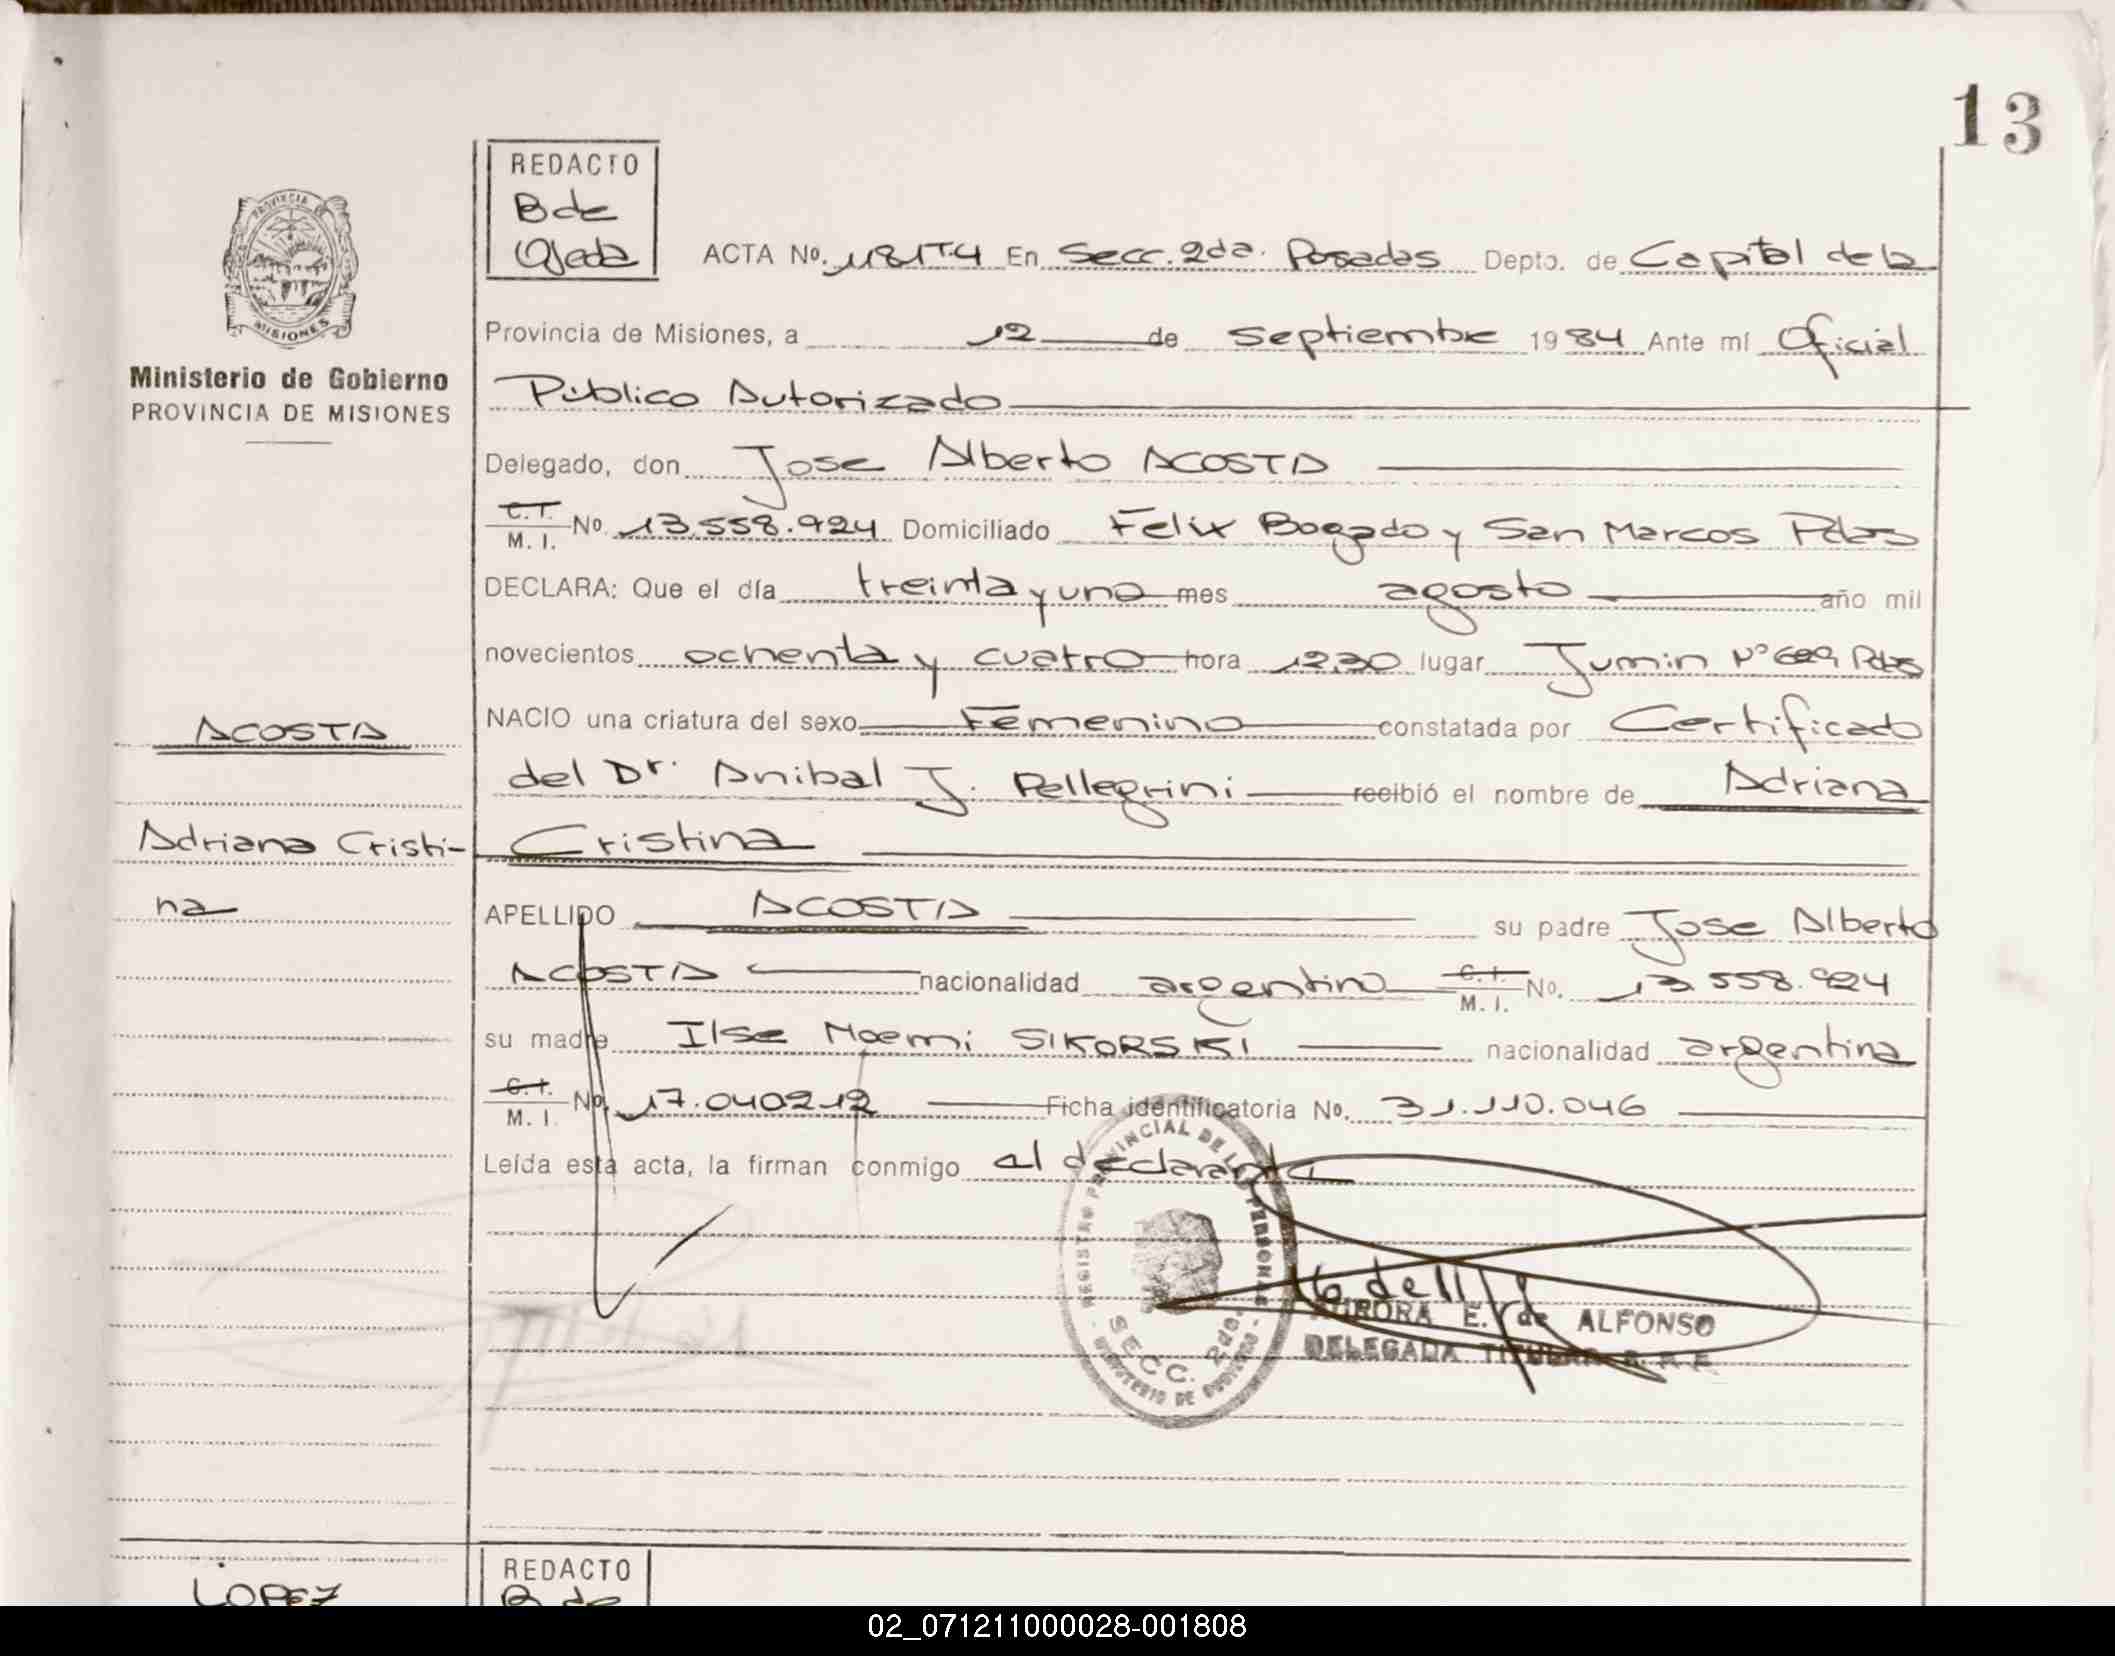 13
REDACTO
B de
Ojeda
ACTA No. 1181T4 En Secc. 2da. Posadas Depto. de Capital de la
PROVINCIA
MISIONES
Ministerio de Gobierno
PROVINCIA DE MISIONES
Provincia de Misiones, a 12 de Septiembre 1984 Ante mí Oficial
Público Autorizado
Delegado, don Jose Alberto ACOSTA
C.I. M. I. No. 13.558.924 Domiciliado Felix Bogado y San Marcos Pdas
DECLARA: Que el día treinta y uno mes agosto año mil
novecientos ochenta y cuatro hora 12,30 lugar Junin Nº 629 Pdas
NACIO una criatura del sexo Femenino constatada por Certificado
del Dr. Anibal J. Pellegrini recibió el nombre de Adriana
Cristina
ACOSTA
Adriana Cristi-
na
APELLIDO ACOSTA su padre Jose Alberto
ACOSTA nacionalidad argentino C.I. M. I. No. 13.558.924
su madre Ilse Noemi SIKORSKI nacionalidad argentina
C.I. M. I. No. 17.040212 Ficha identificatoria No. 31.110.046
Leída esta acta, la firman conmigo el declarante
REGISTRO PROVINCIAL DE LAS PERSONAS
SECC. 2da.
MINISTERIO DE GOBIERNO
AURORA E. de ALFONSO
DELEGADA TITULAR R. P. P.
LOPEZ
REDACTO
B de
02_071211000028-001808